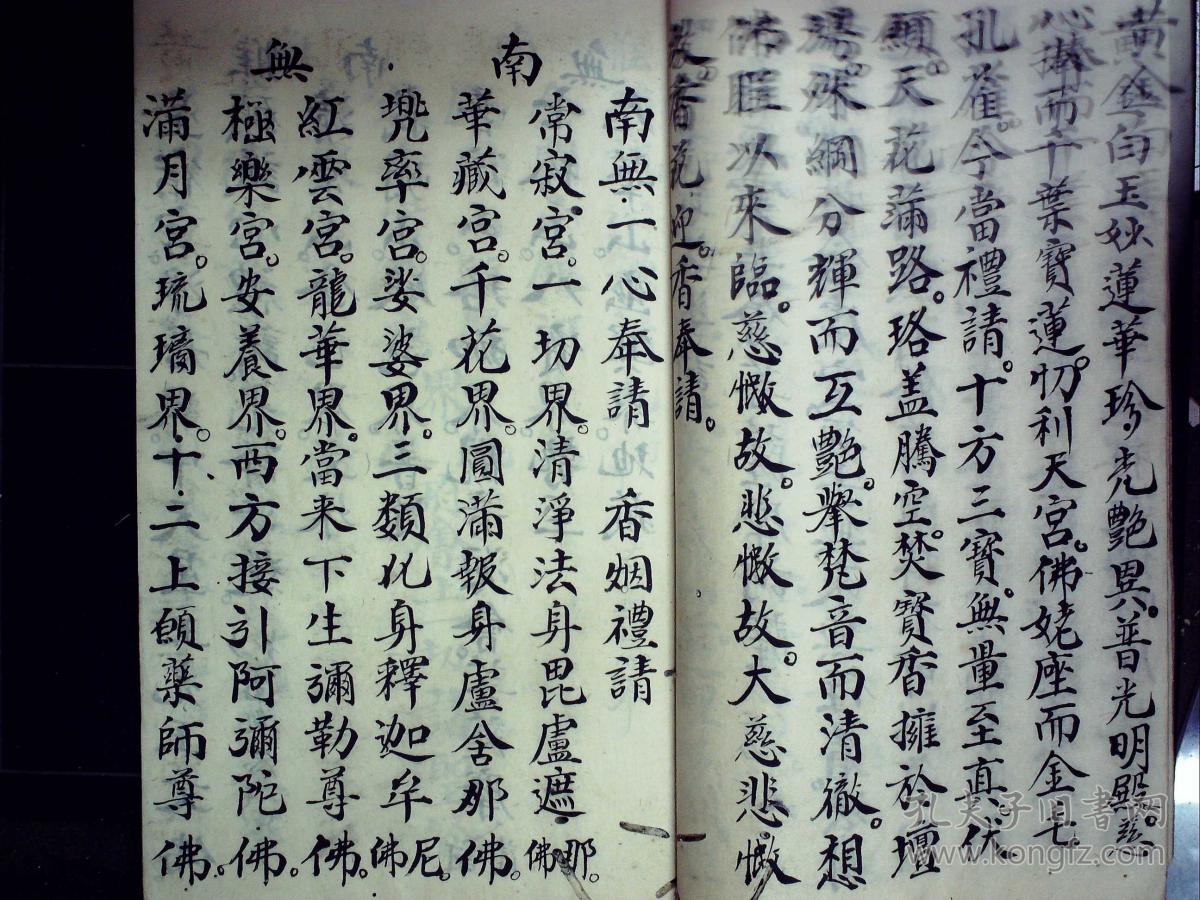 黃金白玉妙蓮華珍。光艷異。普光明殿。
而千葉寶蓮。忉利天宮。佛姥座而金毛
孔雀。今當禮請。十方三寶。無量至真。伏
願。天花滿路。珞盖騰空。焚寶香擁於壇
場。珠網分輝而互艷。舉梵音而清徹。想
佛匪以來臨。慈憫故。悲憫故。大慈悲。憫
香花迎。香奉請。
南無一心奉請 香烟禮請
南
常寂宮。一切界。清淨法身毘盧遮那佛。
華藏宮。千花界。圓滿報身盧舍那佛。
兜率宮。娑婆界。三類化身釋迦牟尼佛。
無
紅雲宮。龍華界。當来下生彌勒尊佛。
極樂宮。安養界。西方接引阿彌陀佛。
滿月宮。琉璃界。十二上願藥師尊佛。
孔夫子旧书网
www.kongfz.com